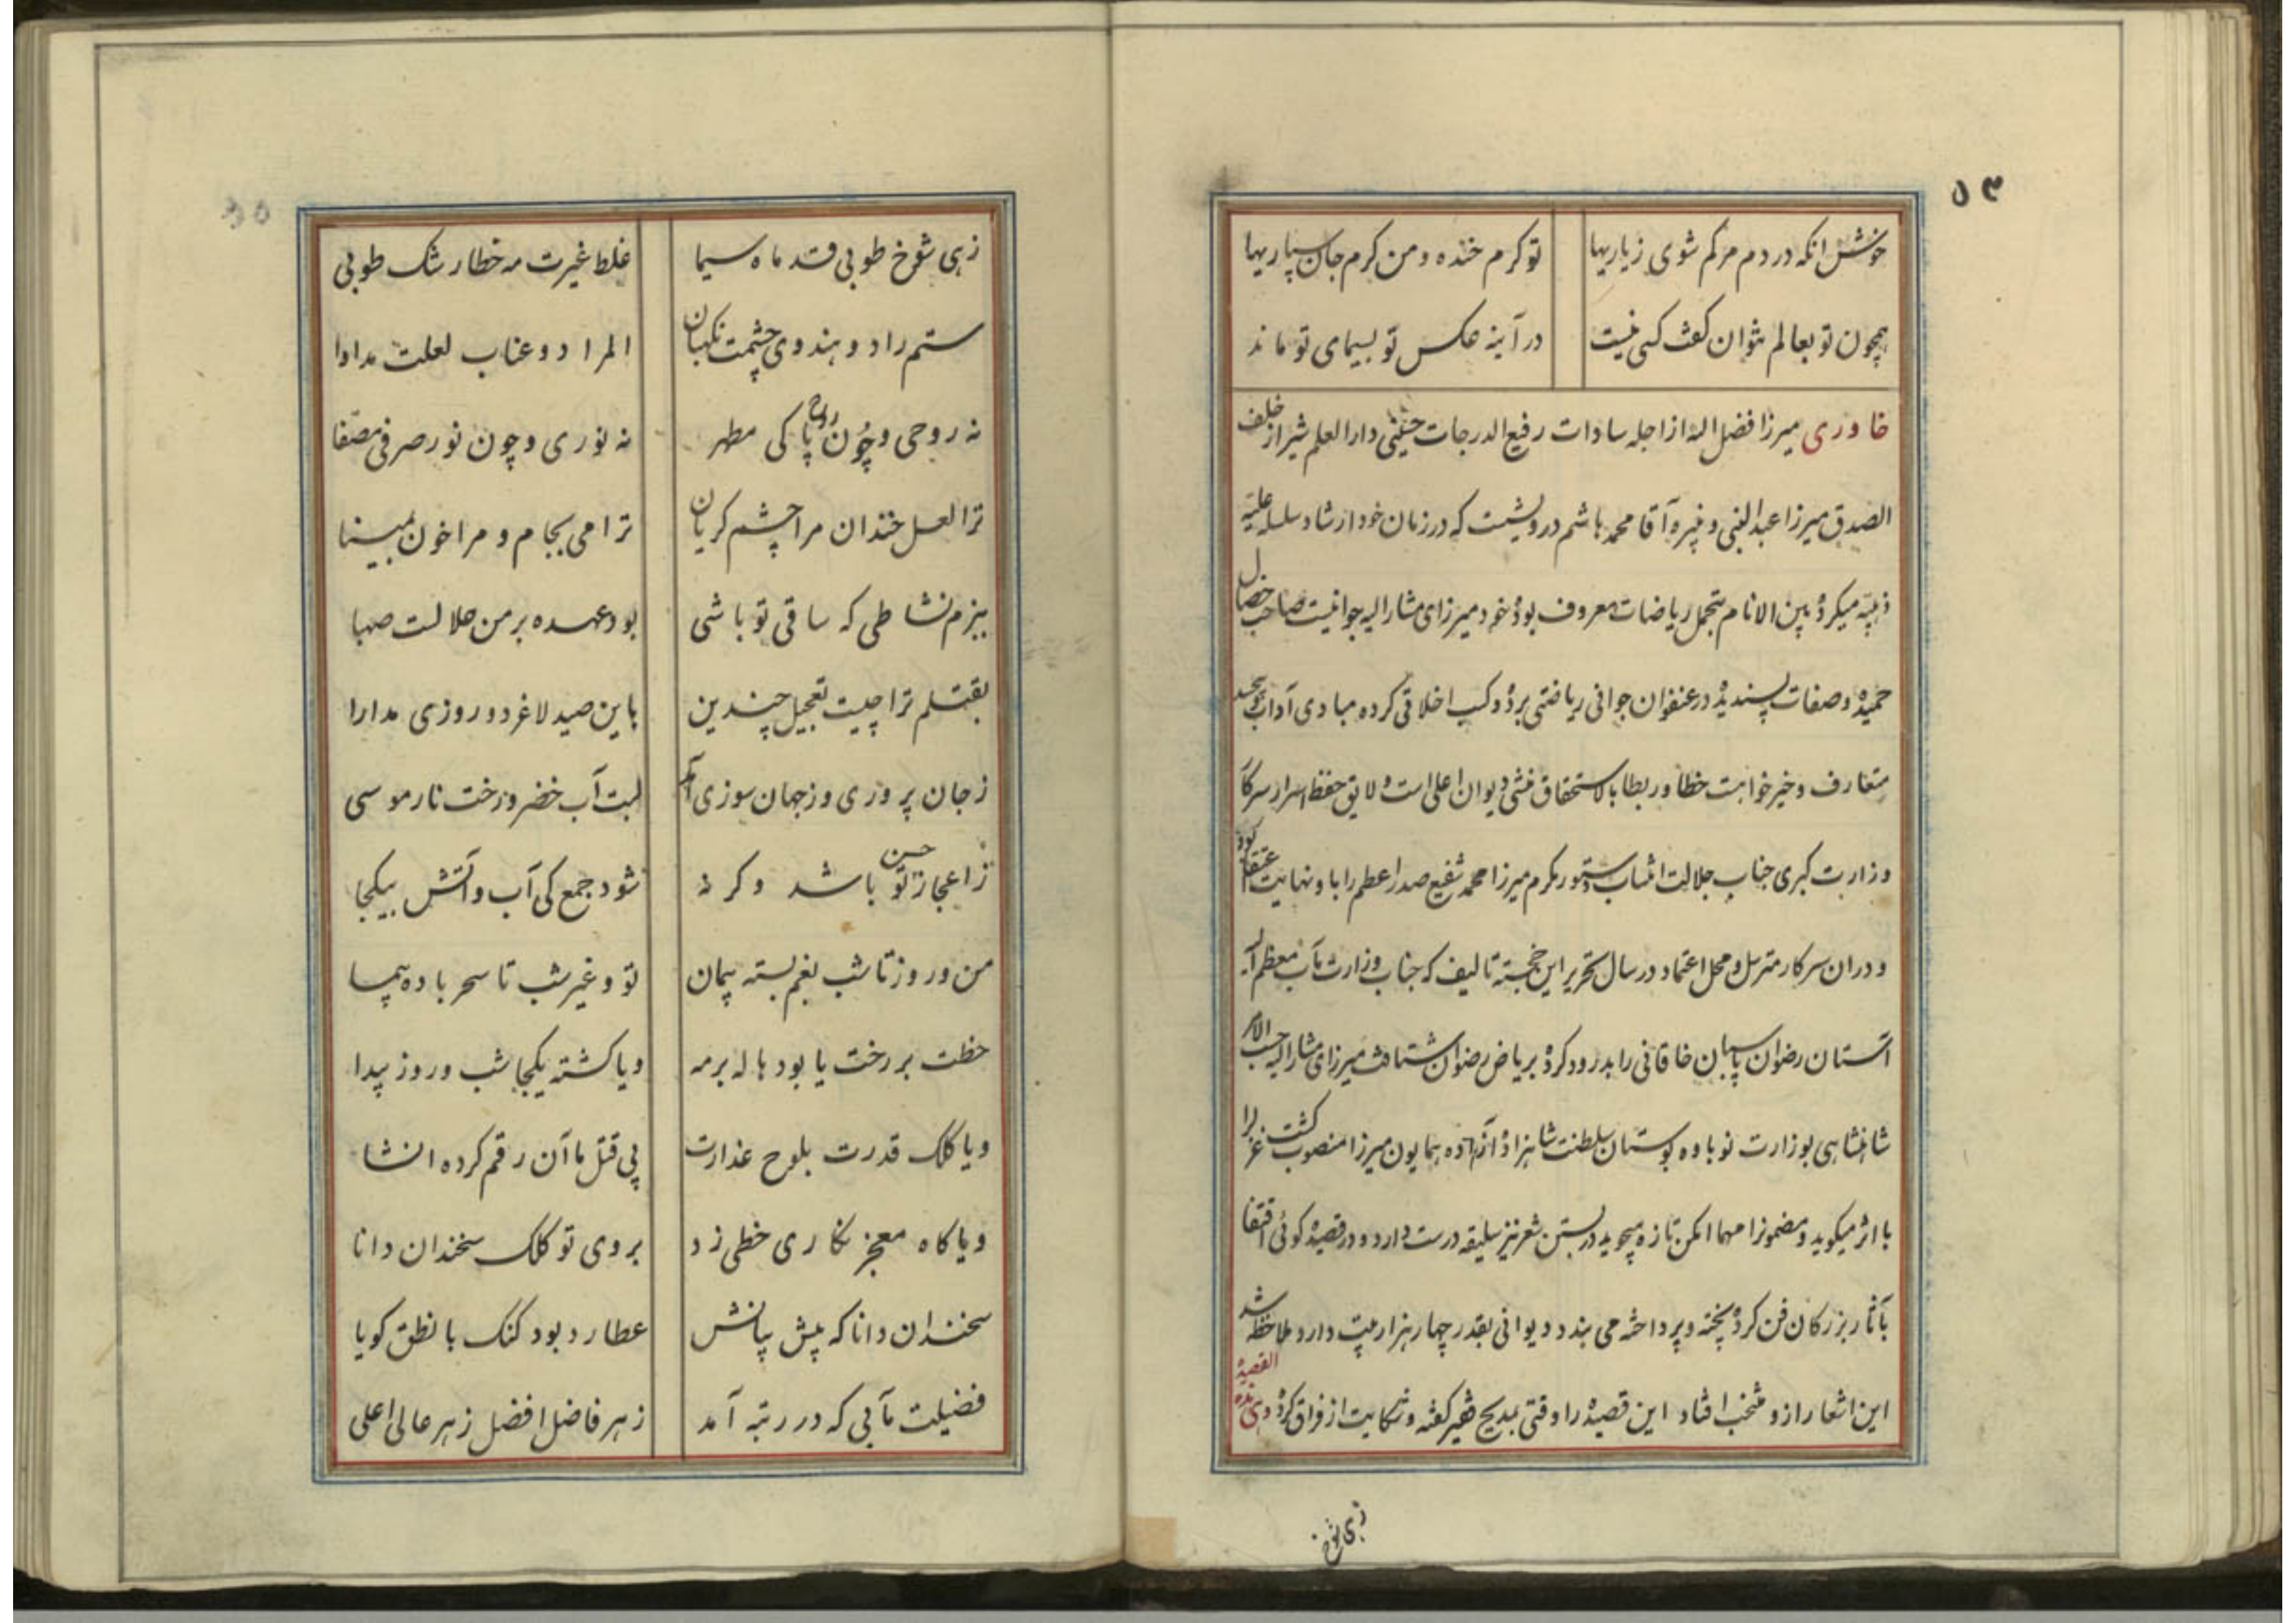 ۵۳
خوش آنکه در دم مرگم شوی زیاریها
تو گرم خنده و من گرم جان سپاریها
همچون تو بعالم نتوان گفت کسی نیست
در آینه عکس تو بسیمای تو ماند
خاوری میرزا فضل الله از اجله سادات رفیع الدرجات حسینی دارالعلم شیراز خلف
الصدق میرزا عبدالنبی و نبیره آقا محمد هاشم درویشست که در زمان خود ارشاد سلسله علیه
ذهبیه میکرده بین الانام بتحمل ریاضات معروف بوده خود میرزای مشارالیه جوانیست صاحب خصال
حمیده و صفات پسندیده در عنفوان جوانی ریاضتی برده و کسب اخلاقی کرده مبادی آداب بوی بسجد
متعارف و خیرخواهت خطا و ربطا بالاستحقاق منشی دیوان اعلی است و لایق حفظ اسرار سرکار
وزارت کبری جناب جلالت انتساب دستور مکرم میرزا محمد شفیع صدر اعظم را باو نهایت اعتقاد بود
و در آن سرکار مترسل و محل اعتماد در سال تحریر این خجسته تالیف که جناب وزارت مآب معظم الیه
آستان رضوان پاسبان خاقانی را بدرود کرده بریاض رضوان شتافت میرزای مشارالیه حسب الامر
شاهنشاهی بوزارت نوباوه بوستان سلطنت شاهزاده آزاده همایون میرزا منصوب گشت غزل را
با اثر میگوید و مضمون را مهما امکن تازه میجوید در بستن شعر نیز سلیقه درست دارد و در قصیده گوئی اقتفا
بآثار بزرگان فن کرده پخته و پرداخته می بندد دیوانی بقدر چهار هزار بیت دارد ملاحظه شد
این اشعار ازو منتخب افتاد این قصیده را وقتی بمدیح فقیر گفته و شکایت از فراق کرده وهی هذه القصیده
زهی شوخ
زهی شوخ طوبی قد ماه سیما
غلط غیرت مه خطا رشک طوبی
ستم را دو هندوی چشمت نگهبان
الم را دو عناب لعلت مداوا
نه روحی و چون روح پاکی مطهر
نه نوری و چون نور صرفی مصفا
ترا لعل خندان مرا چشم گریان
ترا می بجام و مرا خون بمینا
ببزم نشاطی که ساقی تو باشی
بود عهده بر من حلالت صهبا
بقتلم ترا چیست تعجیل چندین
باین صید لاغر دو روزی مدارا
ز جان پروری و ز جهان سوزی آمد
لبت آب خضر و رخت نار موسی
ز اعجاز حسن تو باشد وگرنه
نشود جمع کی آب و آتش بیکجا
من و روز تا شب بغم بسته پیمان
تو و غیر شب تا سحر باده پیما
خطت بر رخت یا بود هاله بر مه
و یا گشته یکجا شب و روز پیدا
و یا کلک قدرت بلوح عذارت
پی قتل ما آن رقم کرده انشا
و یا گاه معجز نگاری خطی زد
بروی تو کلک سخندان دانا
سخندان دانا که پیش بیانش
عطارد بود گنگ با نطق گویا
فضیلت مآبی که در رتبه آمد
ز هر فاضل افضل ز هر عالی اعلی